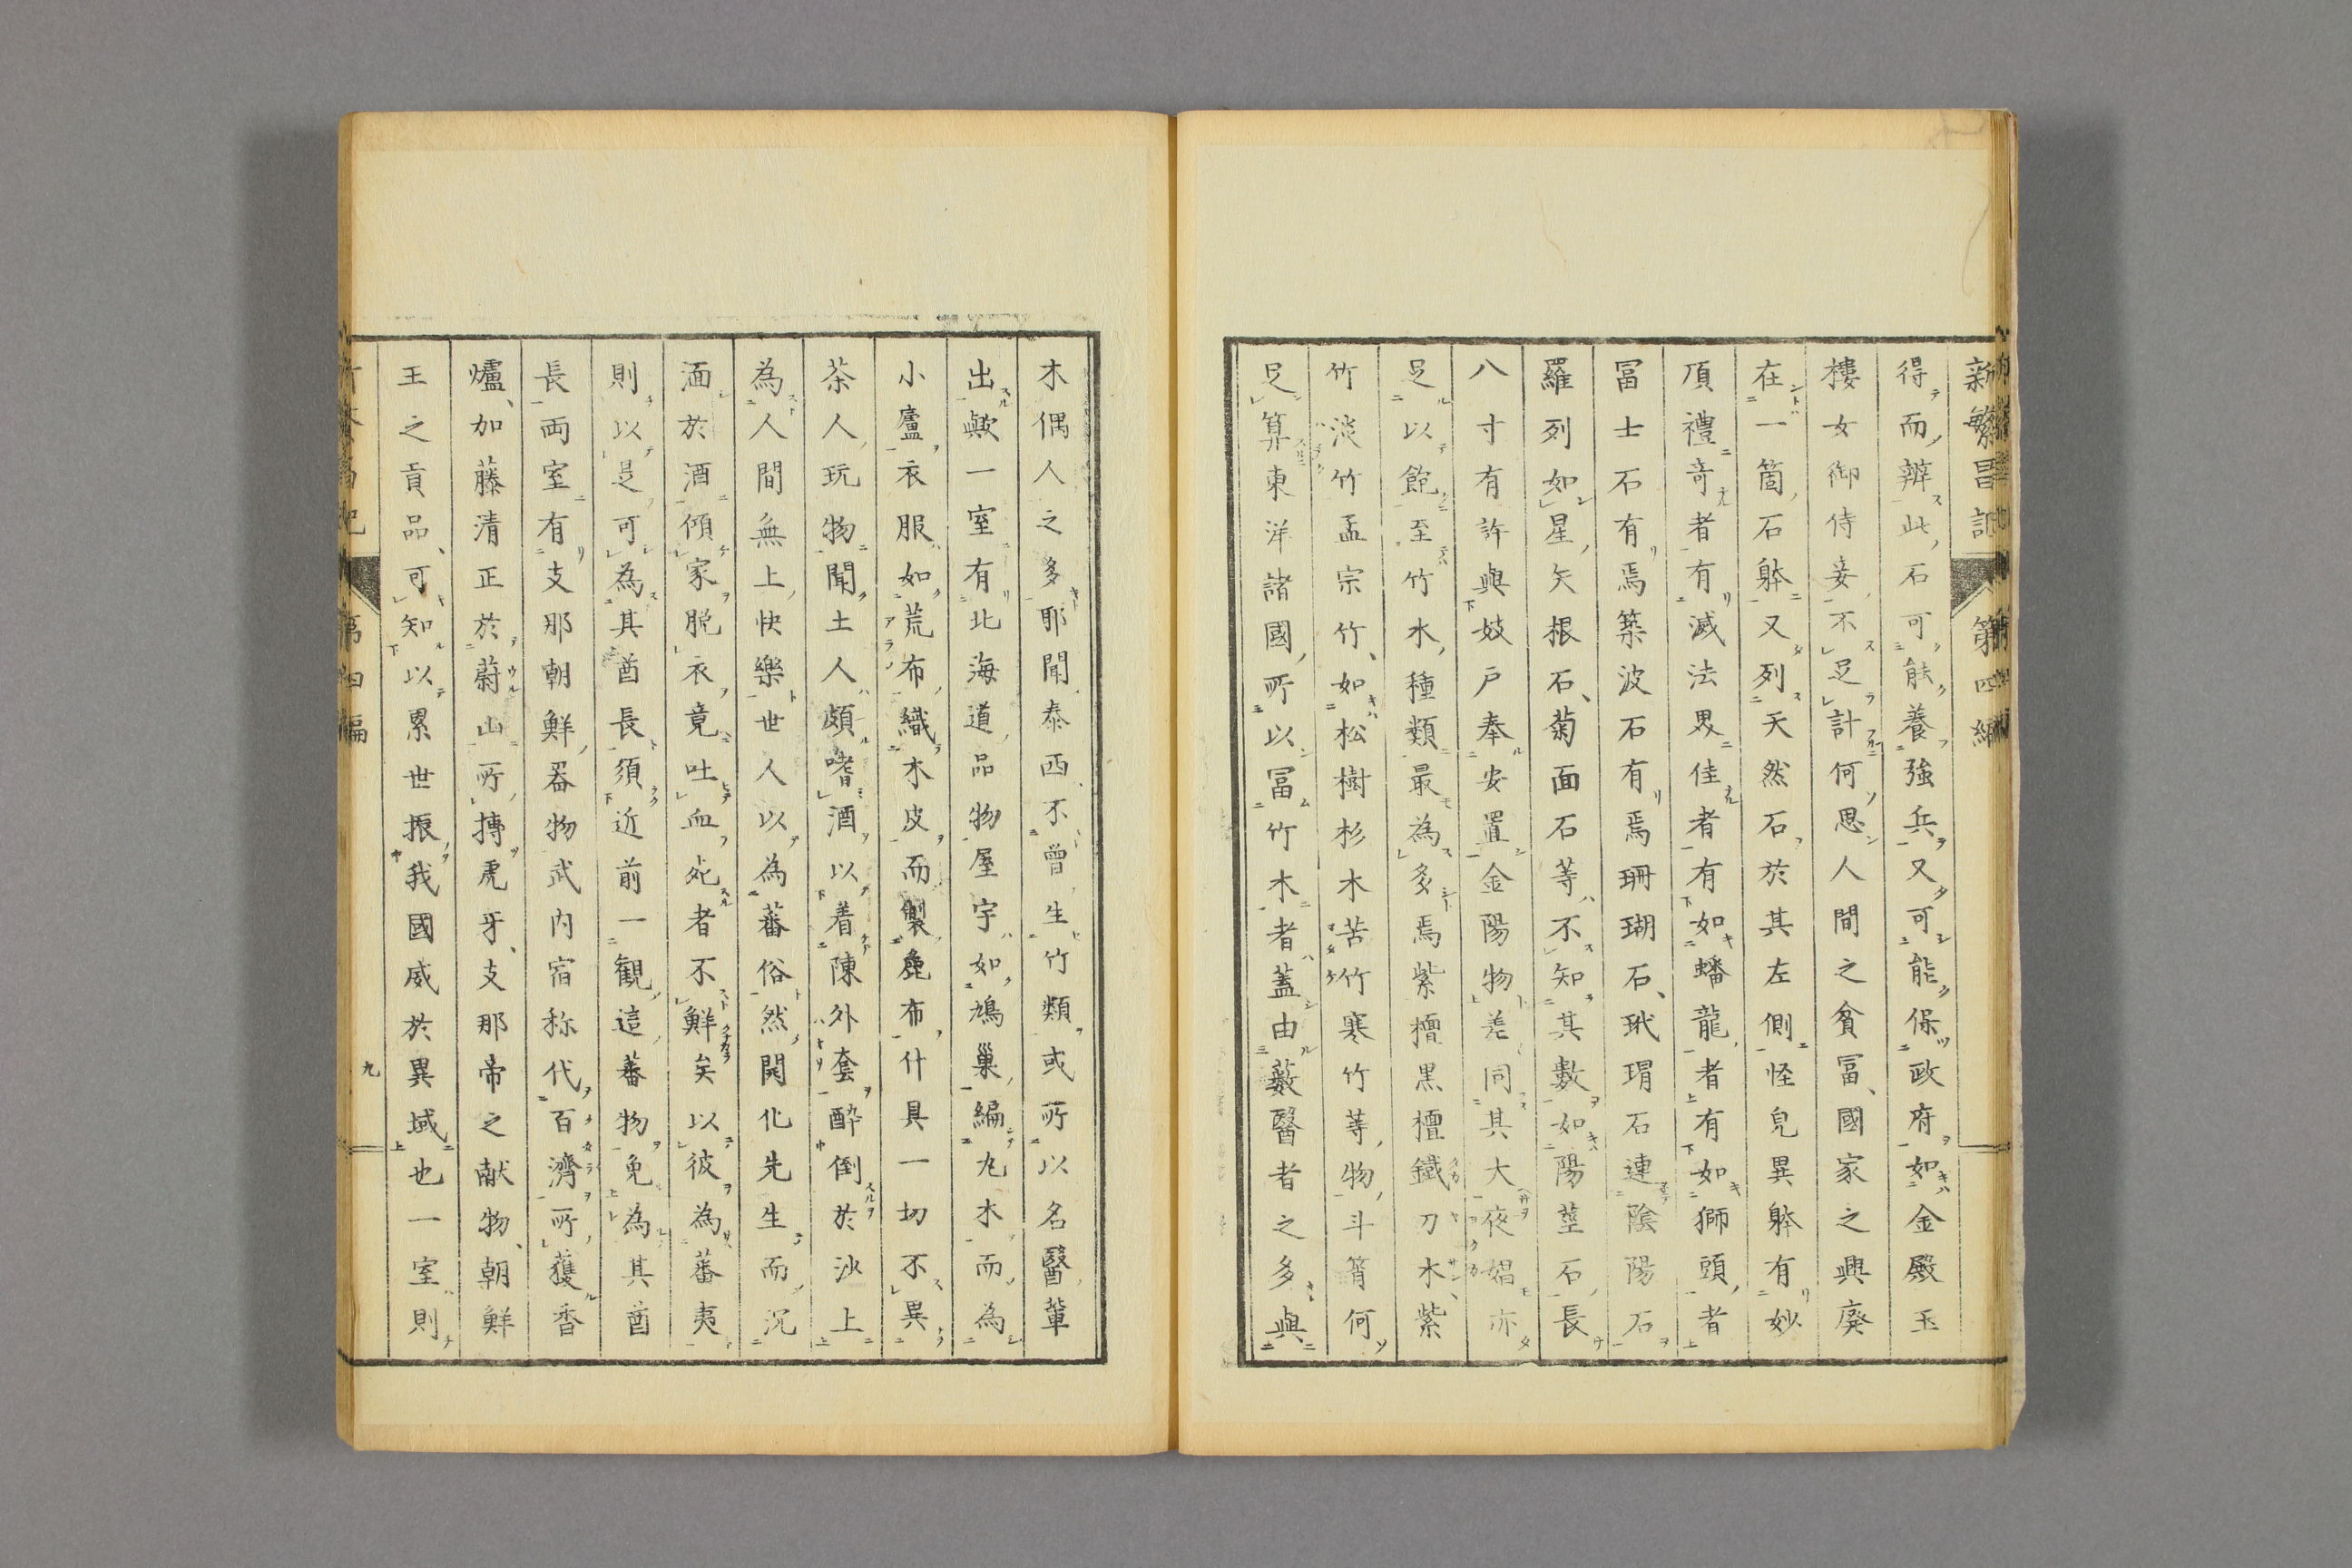 新繁昌記 第四編
得而辨此石可能養強兵又可能保政府如金殿玉
樓女御侍妾不足計何思人間之貧冨、國家之興廢
在一箇石躰又列天然石於其左側怪皃異躰有妙
頂禮竒者有滅法界佳者有如蟠龍者有如獅頭者
冨士石有焉築波石有焉珊瑚石、玳瑁石連陰陽石
羅列如星矢根石、菊面石等不知其數如陽莖石長
八寸有許與妓戸奉安置金陽物差同其大夜娼亦
足以飽至竹木種類最為多焉紫檀黒檀鐵刀木、紫
竹淡竹孟宗竹、如松樹杉木苦竹寒竹等物斗筲何
足算東洋諸國所以冨竹木者蓋由藪醫者之多與
木偶人之多耶聞泰西、不曾生竹類或所以名醫輩
出歟一室有北海道品物屋宇如鳩巢編丸木而為
小廬衣服如荒布織木皮而製麁布什具一切不異
茶人玩物聞土人頗嗜酒以着陳外套醉倒於沙上
為人間無上快樂世人以為蕃俗然開化先生而沉
湎於酒傾家脱衣竟吐血死者不鮮矣以彼為蕃夷
則以是可為其酋長須近前一觀這蕃物免為其酋
長両室有支那朝鮮器物武内宿称代百濟所獲香
爐、加藤清正於蔚山所搏虎牙、支那帝之献物、朝鮮
王之貢品、可知以累世振我國威於異域也一室則
第四編
九